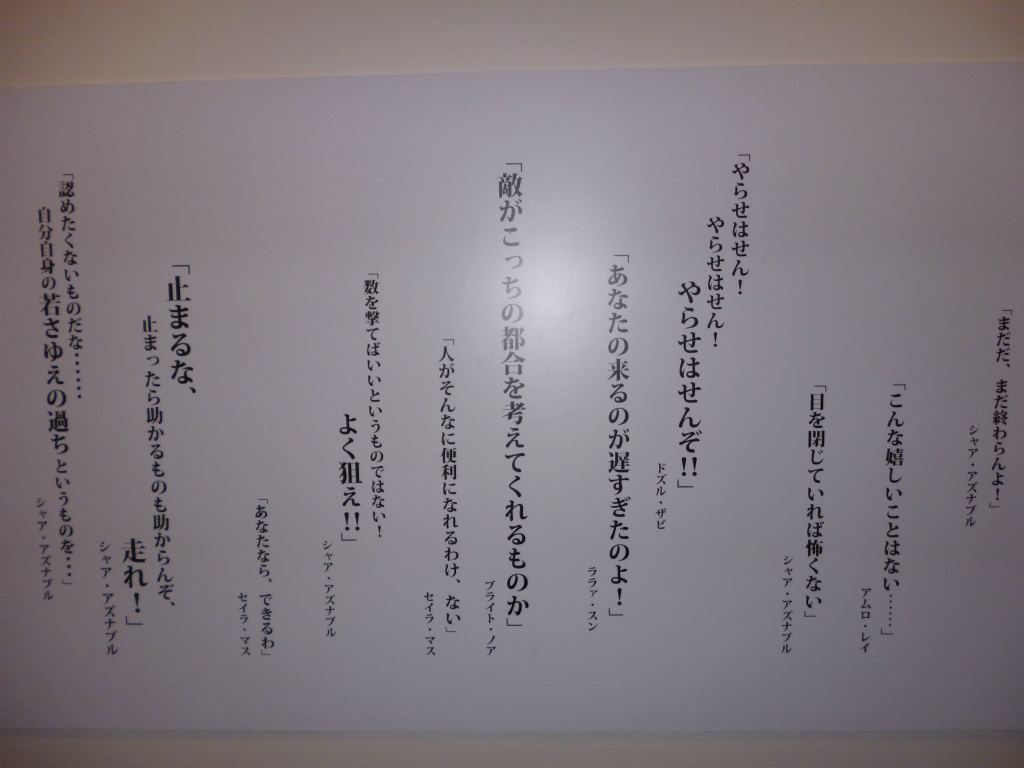 「まだだ、まだ終わらんよ！」
シャア・アズナブル
「こんな嬉しいことはない……」
アムロ・レイ
「目を閉じていれば怖くない」
シャア・アズナブル
「やらせはせん！
やらせはせん！
やらせはせんぞ!!」
ドズル・ザビ
「あなたの来るのが遅すぎたのよ！」
ララァ・スン
「敵がこっちの都合を考えてくれるものか」
ブライト・ノア
「人がそんなに便利になれるわけ、ない」
セイラ・マス
「数を撃てばいいというものではない！
よく狙え!!」
シャア・アズナブル
「あなたなら、できるわ」
セイラ・マス
「止まるな、
止まったら助かるものも助からんぞ、
走れ！」
シャア・アズナブル
「認めたくないものだな……
自分自身の若さゆえの過ちというものを…」
シャア・アズナブル